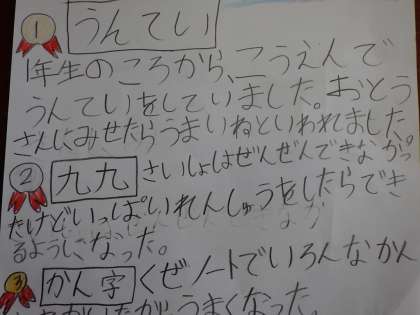 1 うんてい
1年生のころから、こうえんで
うんていをしていました。おとう
さんにみせたらうまいねといわれました
2 九九 さいしょはぜんぜんできなかっ
たけどいっぱいれんしゅうをしたらでき
るように、なった。
3 かん字 くぜノートでいろんなかん
うまくなった。